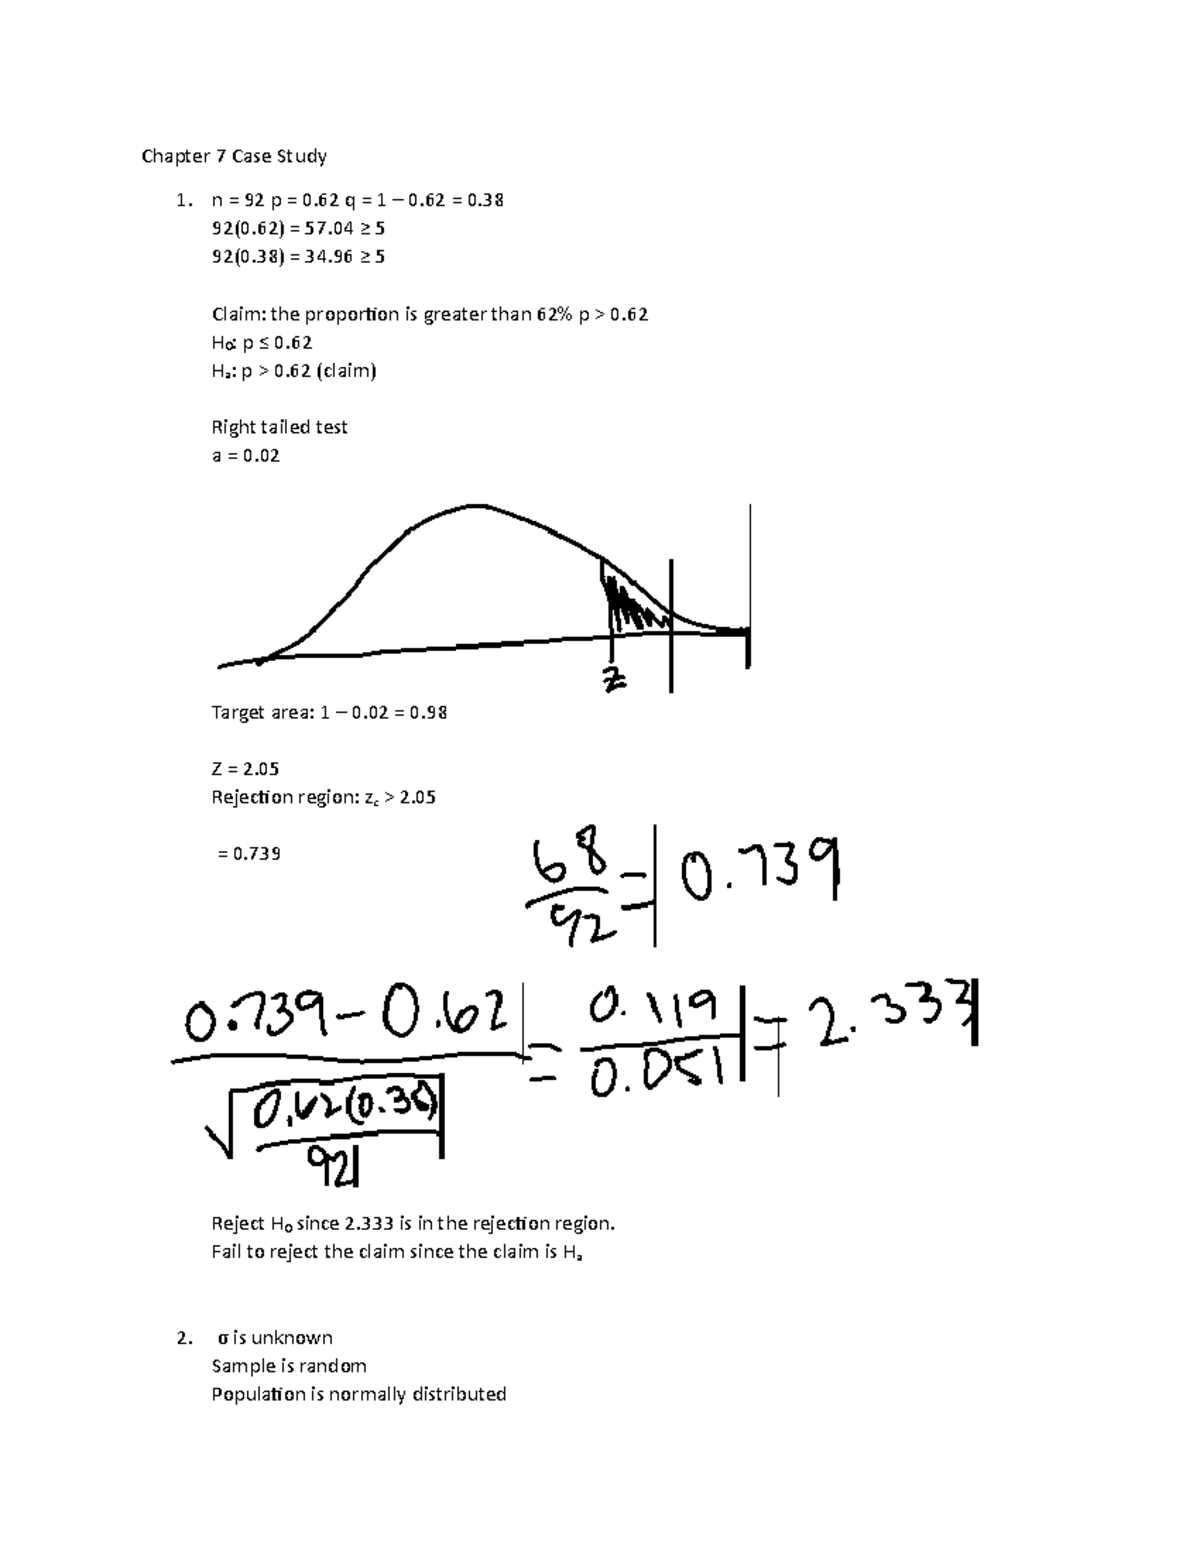 Chapter 7 Case Study
1. n = 92 p = 0.62 q = 1 – 0.62 = 0.38
92(0.62) = 57.04 ≥ 5
92(0.38) = 34.96 ≥ 5
Claim: the proportion is greater than 62% p > 0.62
H₀: p ≤ 0.62
Hₐ: p > 0.62 (claim)
Right tailed test
a = 0.02
z
Target area: 1 – 0.02 = 0.98
Z = 2.05
Rejection region: z꜀ > 2.05
= 0.739
68/92 = 0.739
(0.739 – 0.62)/√(0.62(0.38)/92) = 0.119/0.051 = 2.333
Reject H₀ since 2.333 is in the rejection region.
Fail to reject the claim since the claim is Hₐ
2. σ is unknown
Sample is random
Population is normally distributed